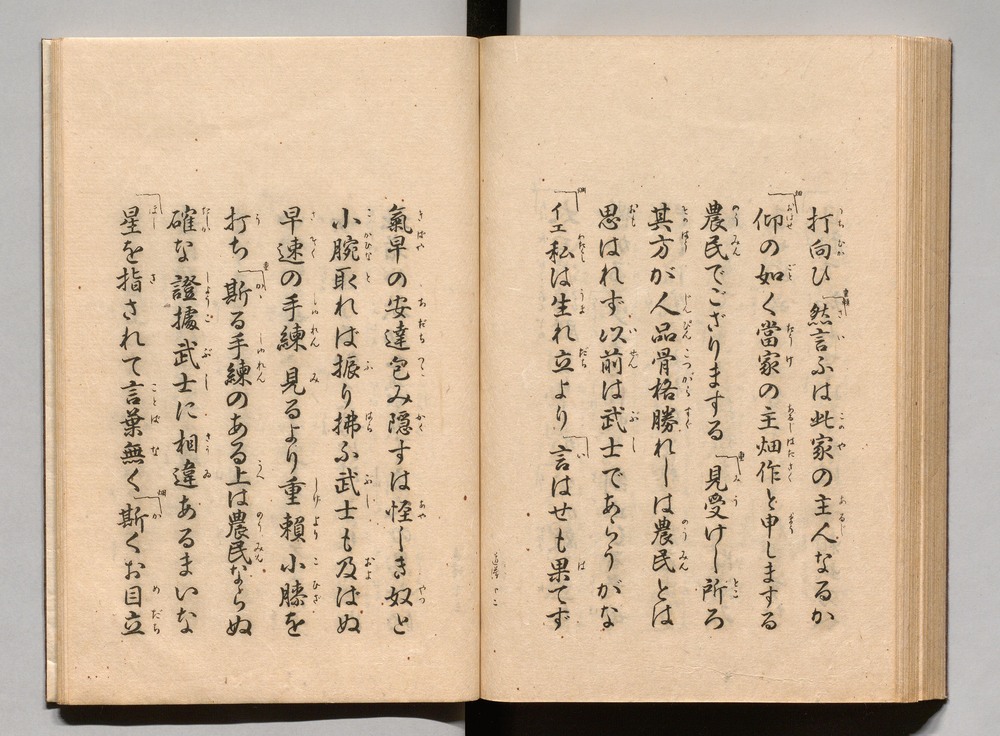 打向ひ 然言ふは此家の主人なるか
仰の如く當家の主畑作と申しまする
農民でござりまする 見受けし所ろ
其方が人品骨格勝れしは農民とは
思はれず 以前は武士であらうがな
イエ私は生れ立より 言はせも果てず
氣早の安達包み隠すは怪しき奴と
小腕取れば振り拂ふ武士も及ばぬ
早速の手練 見るより重頼小膝を
打ち 斯る手練のある上は農民ならぬ
確な證據武士に相違あるまいな
星を指されて言葉無く 斯くお目立